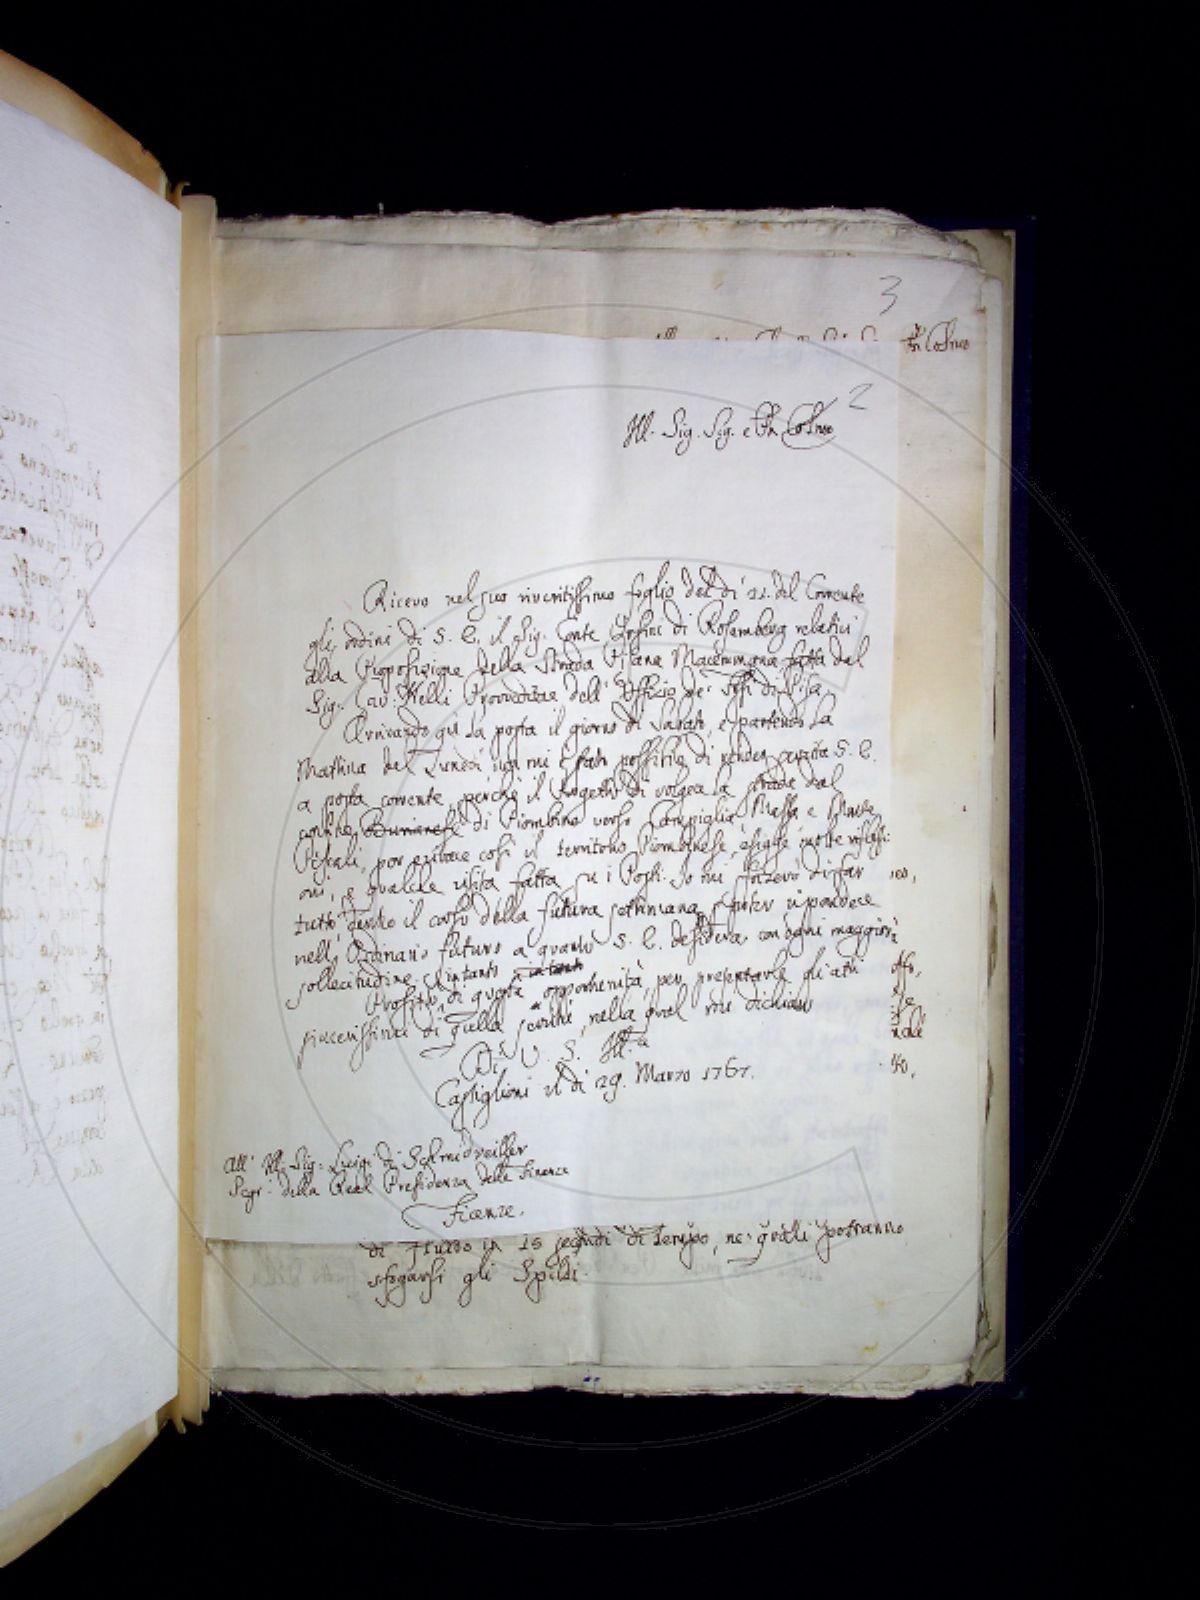 3
2
Ill. Sig. Sig. e Pn Colmo
Ricevo nel suo riveritissimo foglio del dì 21. del Corrente
gli ordini di S. E. il Sig. Conte Orsini di Rosemberg relativi
alla Proposizione della Strada Pisana Maremmana fatta dal
Sig. Cav. Nelli Provveditore dell' Uffizio de' Fossi di Pisa
Arrivando quì la posta il giorno di Sabato, e partendo la
Mattina del Lunedì non mi è stato possibile di render servita S. E.
a posta corrente, perchè il Progetto di volger la strada dal
confine Burianese di Piombino verso Campiglia, Massa e Monte
Pescali, per evitare così il territorio Piombinese, esigge molte riflessi-
oni, e qualche visita fatta su i Posti. Io mi
tutto dentro il corso della futura settimana, e rispondere
nell' Ordinario futuro a quanto S. E. desidera con ogni maggiore
sollecitudine. Intanto
Profitto di questa opportunità, per presentarle gli atti
sincerissimi di quella servitù, nella qual mi dichiaro
Di V. S. Ill.ma
Castiglioni il dì 29. Marzo 1767.
All' Ill. Sig. Luigi di Schmidveiller
Segr. della Real Presidenza delle Finanze
Firenze.
di fluido in 15 secondi di tempo, ne' quali potranno
sfogarsi gli Spildi